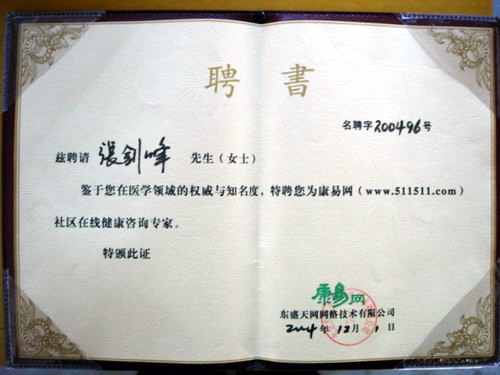 聘書
名聘字200496号
兹聘请 張剑峰 先生(女士)
鉴于您在医学领域的权威与知名度,特聘您为康易网(www.511511.com)
社区在线健康咨询专家。
特颁此证
康易网
东盛天网网络技术有限公司
2004 年 12月 1 日